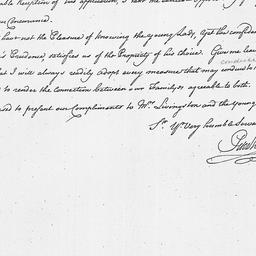 able Reception of his application, I take the earliest
our Concurrence.
I have not the Pleasure of knowing the young Lady, yet the confiden
's Prudence, satisfies us of the Propriety of his choice. Give me lea
at I will always readily adopt every measure that may conduce to
conduce
to render the Connection between our Familys agreeable to both.
to present our Compliments to Mrs. Livingston and the young
Sr. Yr. Very humble Serva